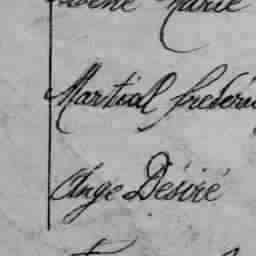 Marie
Martial frederi
Ange Désiré